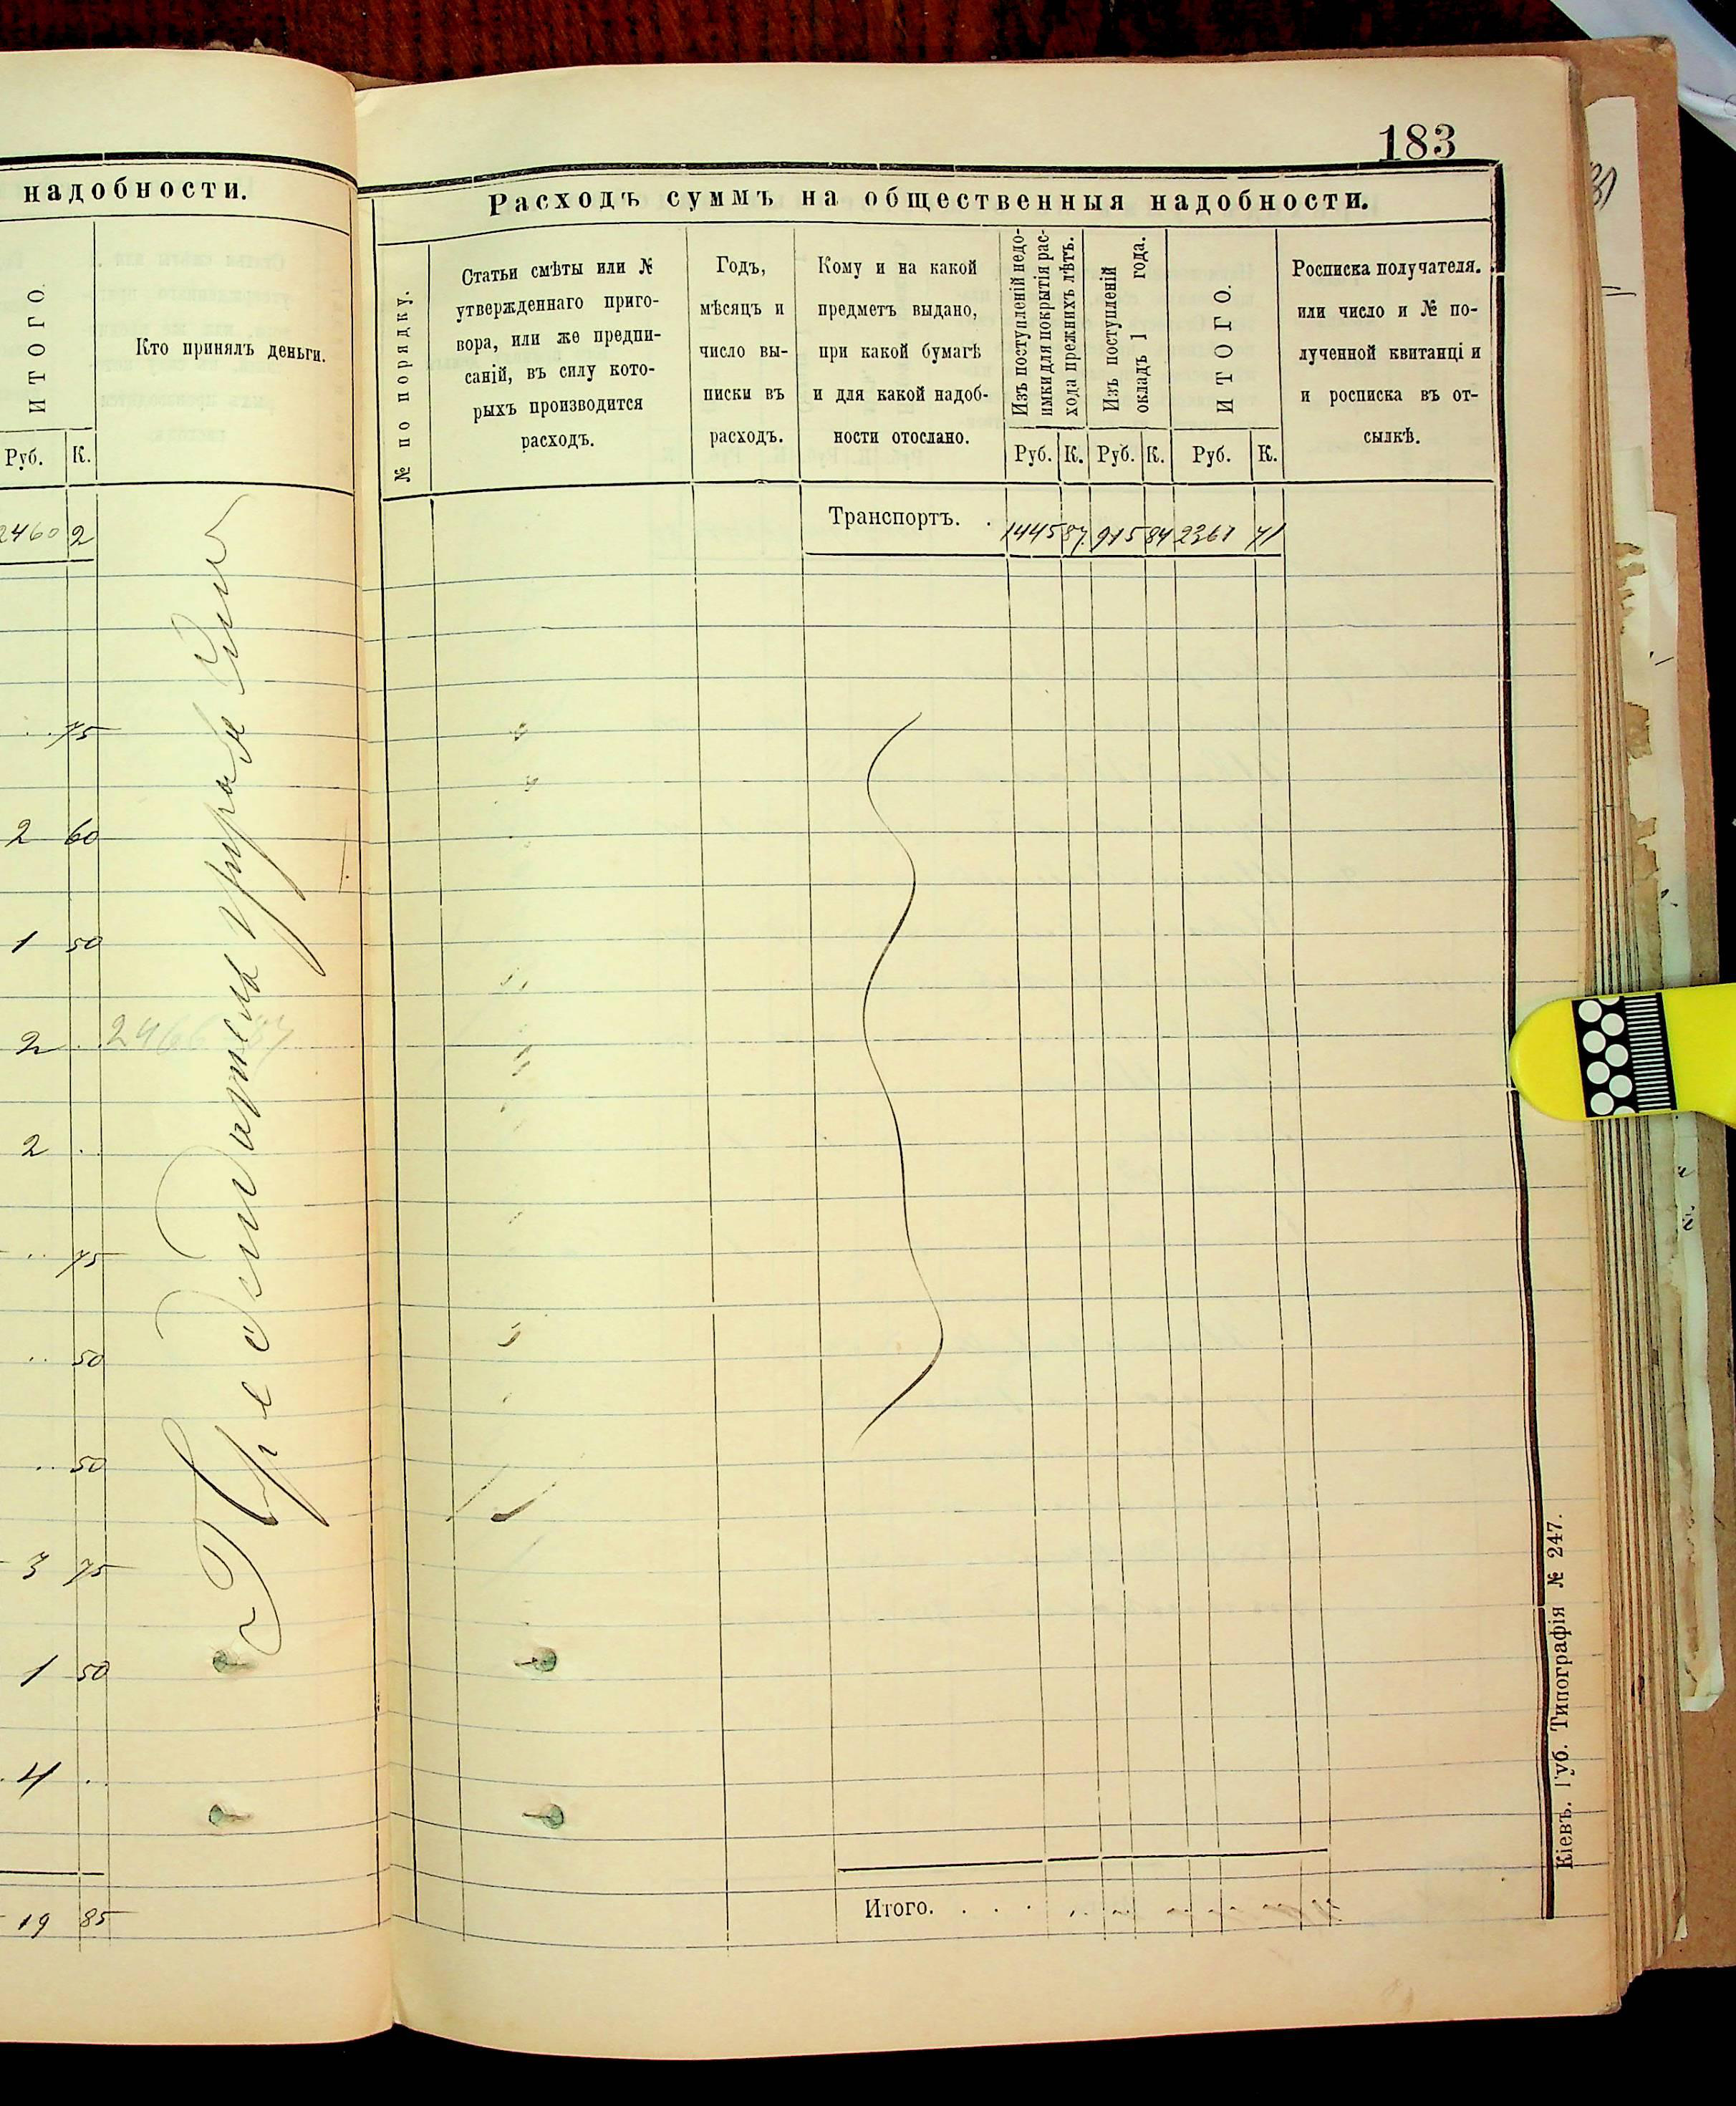 надобности.
ИТОГО.
Кто принялъ деньги.
Руб. К.
2460 2
.. 75
2 60
1 50
2 ..
2 ..
.. 75
.. 50
.. 50
3 75
1 50
4 ..
19 85
183
Расходъ суммъ на общественныя надобности.
№ по порядку.
Статьи смѣты или №
утвержденнаго приго-
вора, или же предпи-
саній, въ силу кото-
рыхъ производится
расходъ.
Годъ,
мѣсяцъ и
число вы-
писки въ
расходъ.
Кому и на какой
предметъ выдано,
при какой бумагѣ
и для какой надоб-
ности отослано.
Изъ поступленій недо-
имки для покрытія рас-
хода прежнихъ лѣтъ.
Изъ поступленій
окладъ 1 года.
ИТОГО.
Росписка получателя.
или число и № по-
лученной квитанці и
и росписка въ от-
сылкѣ.
Руб. К. Руб. К. Руб. К.
Транспортъ. . 1445 87 915 84 2361 71
Итого. . . .
Кіевъ. Губ. Типографія № 247.